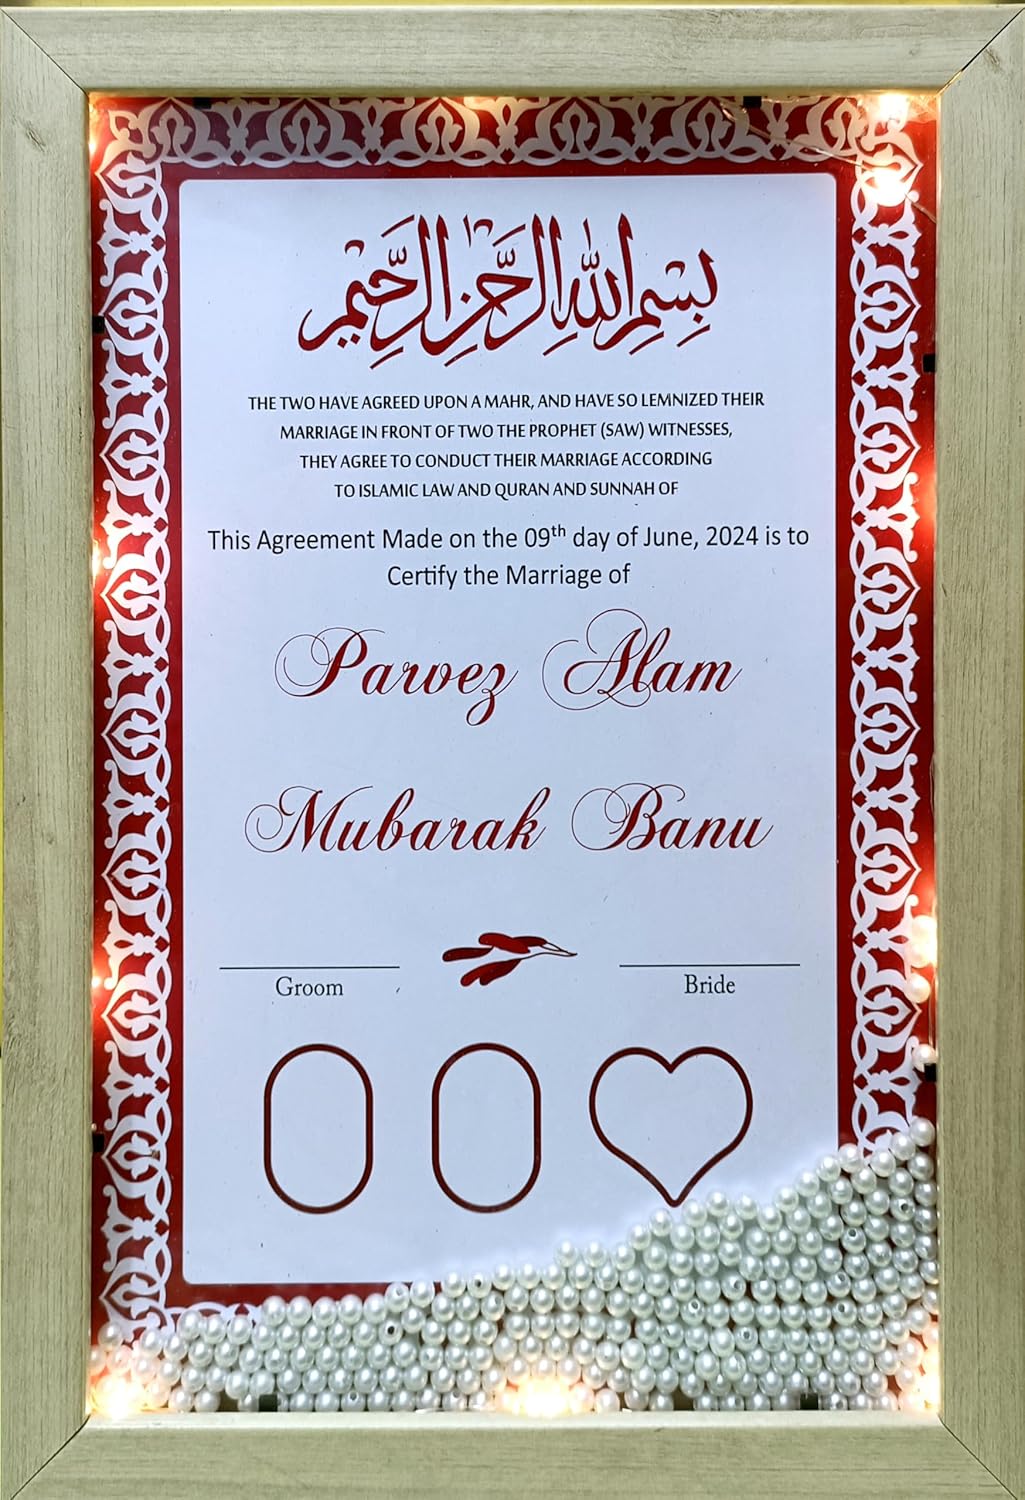 بسم الله الرحمن الرحيم
THE TWO HAVE AGREED UPON A MAHR, AND HAVE SO LEMNIZED THEIR
MARRIAGE IN FRONT OF TWO THE PROPHET (SAW) WITNESSES,
THEY AGREE TO CONDUCT THEIR MARRIAGE ACCORDING
TO ISLAMIC LAW AND QURAN AND SUNNAH OF
This Agreement Made on the 09th day of June, 2024 is to
Certify the Marriage of
Parvez Alam
Mubarak Banu
Groom
Bride